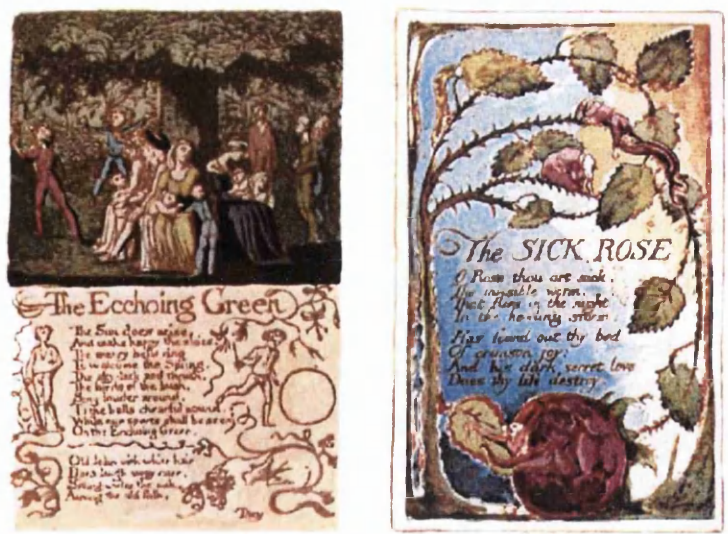 The Ecchoing Green
The Sun does arise,
And make happy the skies
The merry bells ring
To welcome the Spring.
The sky-lark and thrush,
The birds of the bush,
Sing louder around,
To the bells chearful sound.
While our sports shall be seen
On the Ecchoing Green.
Old John with white hair
Does laugh away care,
Sitting under the oak,
Among the old folk,
They
The SICK ROSE
O Rose thou art sick.
The invisible worm,
That flies in the night
In the howling storm:
Has found out thy bed
Of crimson joy:
And his dark secret love
Does thy life destroy.